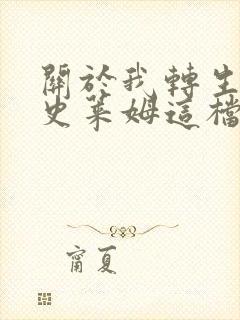 關於我轉生
史萊姆這檔
甯夏